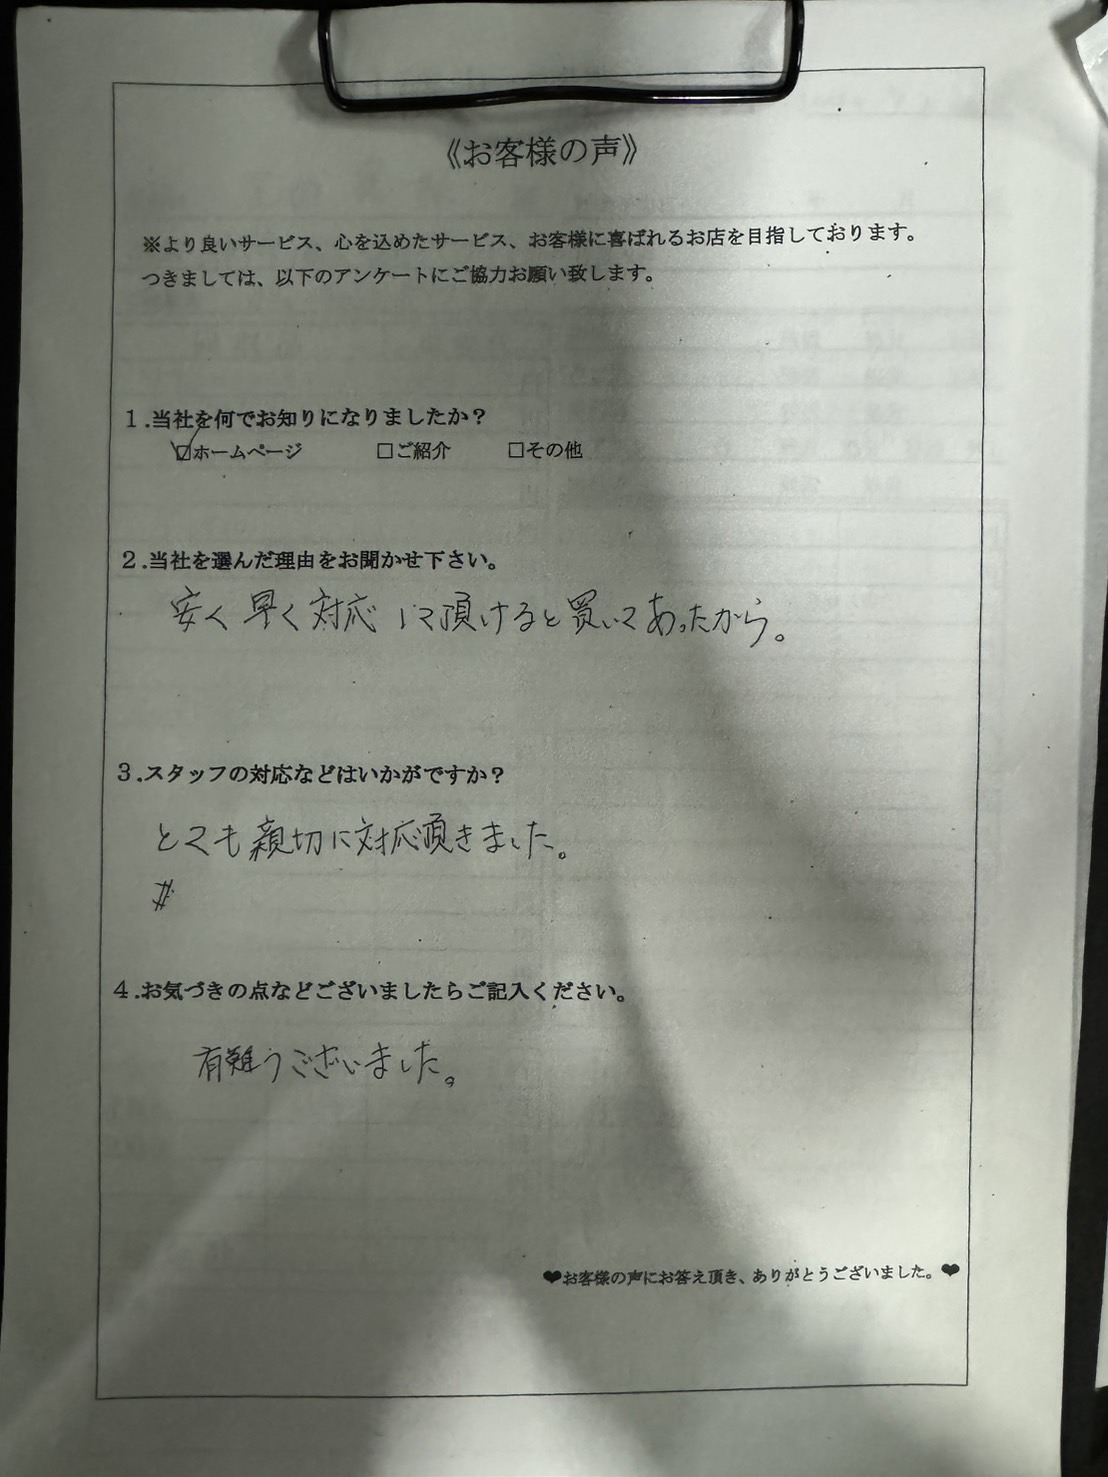 《お客様の声》
※より良いサービス、心を込めたサービス、お客様に喜ばれるお店を目指しております。
つきましては、以下のアンケートにご協力お願い致します。
1.当社を何でお知りになりましたか?
☑ホームページ □ご紹介 □その他
2.当社を選んだ理由をお聞かせ下さい。
安く早く対応して頂けると買いてあったから。
3.スタッフの対応などはいかがですか?
とても親切に対応頂きました。
4.お気づきの点などございましたらご記入ください。
有難うございました。
❤お客様の声にお答え頂き、ありがとうございました。❤